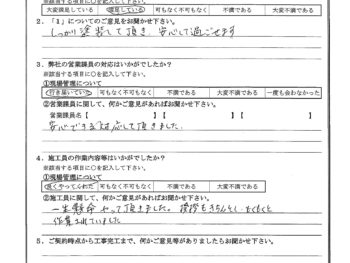 ※該当する項目に○を記入して下さい。
大変満足している 満足している 可も無く不可もなく 不満である 大変不満である
2.「1」についてのご意見をお聞かせ下さい。
しっかり塗装して頂き、安心して過ごせます
3.弊社の営業課員の対応はいかがでしたか？
※該当する項目に○を記入して下さい。
①現場管理について
行き届いていた 可もなく不可もなく 不満である 大変不満である 一度も会わなかった
②営業課員に関して、何かご意見があればお聞かせ下さい。
営業課員名【 】【 】【 】
安心できる対応して頂きました。
4.施工員の作業内容等はいかがでしたか？
※該当する項目に○を記入して下さい。
①現場管理について
良くやってくれた 可もなく不可もなく 不満である 大変不満である
②施工員に関して、何かご意見があればお聞かせ下さい。
一生懸命やって頂きました。挨拶もきちんとし、もくもくと
作業されていました
5.ご契約時点から工事完工まで、何かご意見等がありましたらお聞かせ下さい。